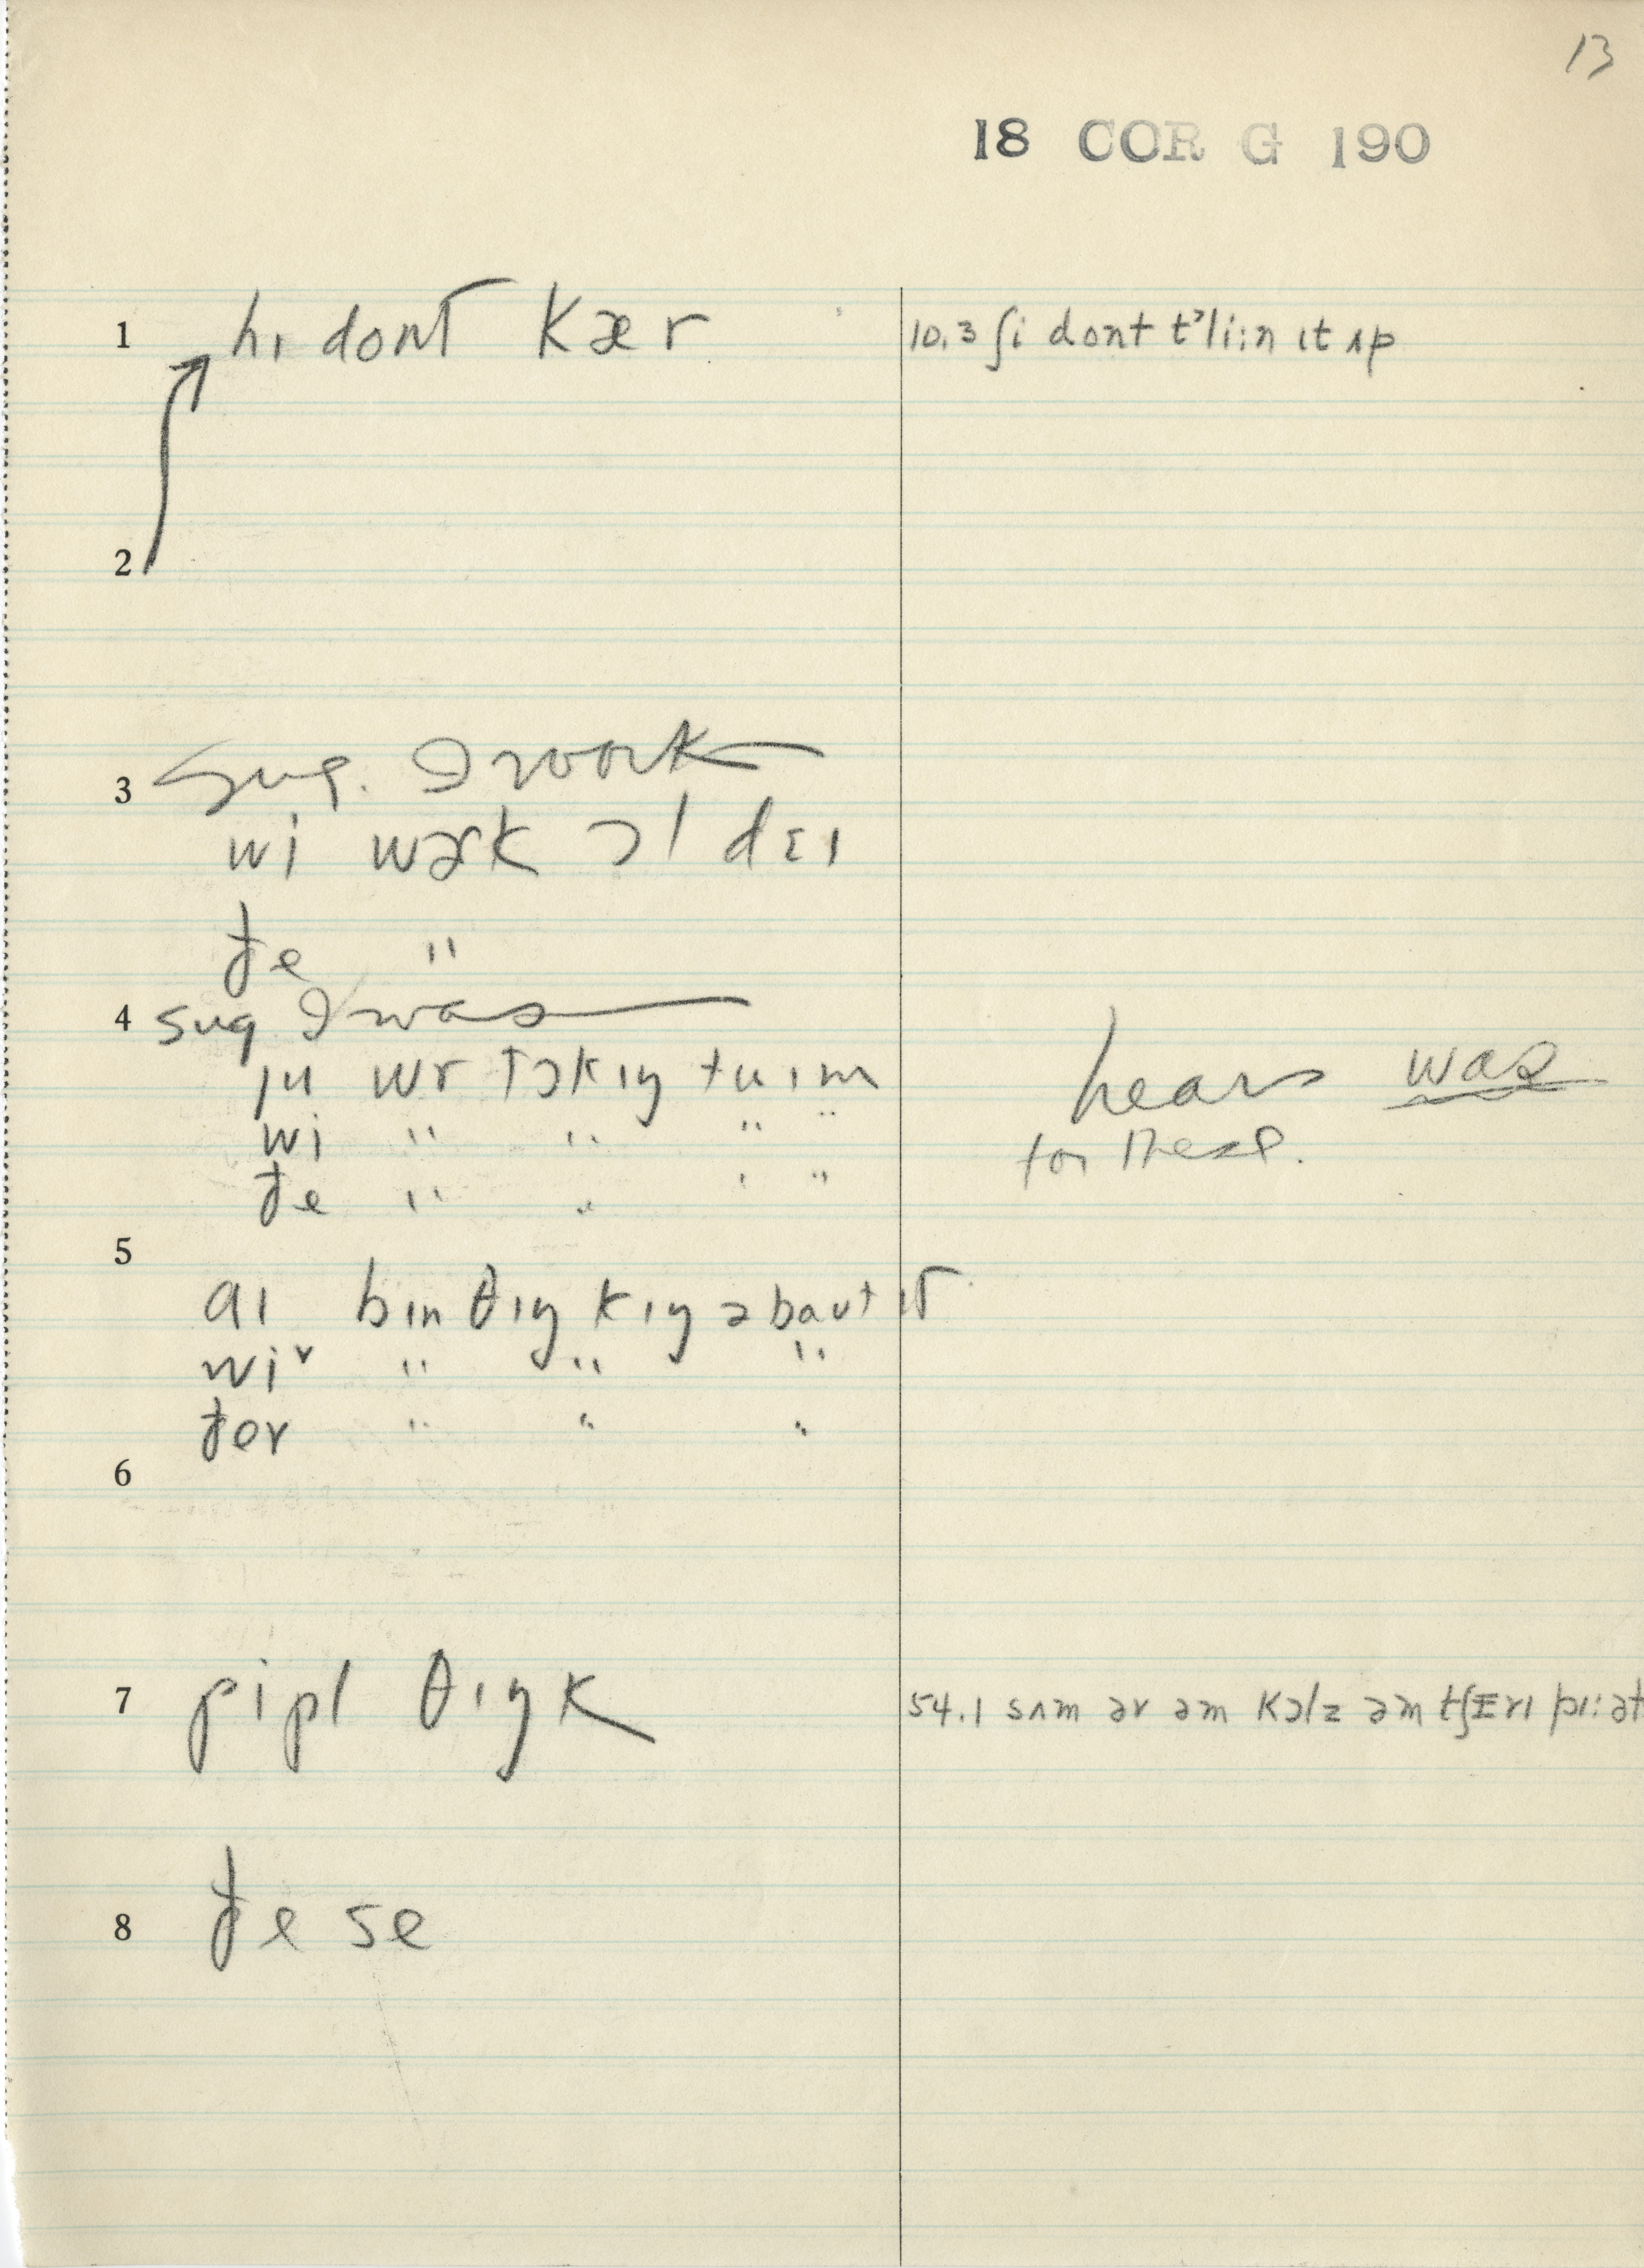 13
18 COR G 190
1 hɪ dont kær
10.3 ʃi dont t'li:n ɪt ʌp
2
3 sug. I work
wi wɚk ɔl dɛɪ
ðe "
4 sug I was
ju wr tɔkɪŋ tu ɪm
wi " " " "
ðe " " " "
hears was
for these.
5
aɪ bɪn θɪŋkɪŋ əbaut ɪt
wiv " " "
ðev " " "
6
7 pipl θɪŋk
54.1 sʌm ər əm kɔlz əm tʃɛrɪ
8 ðe se